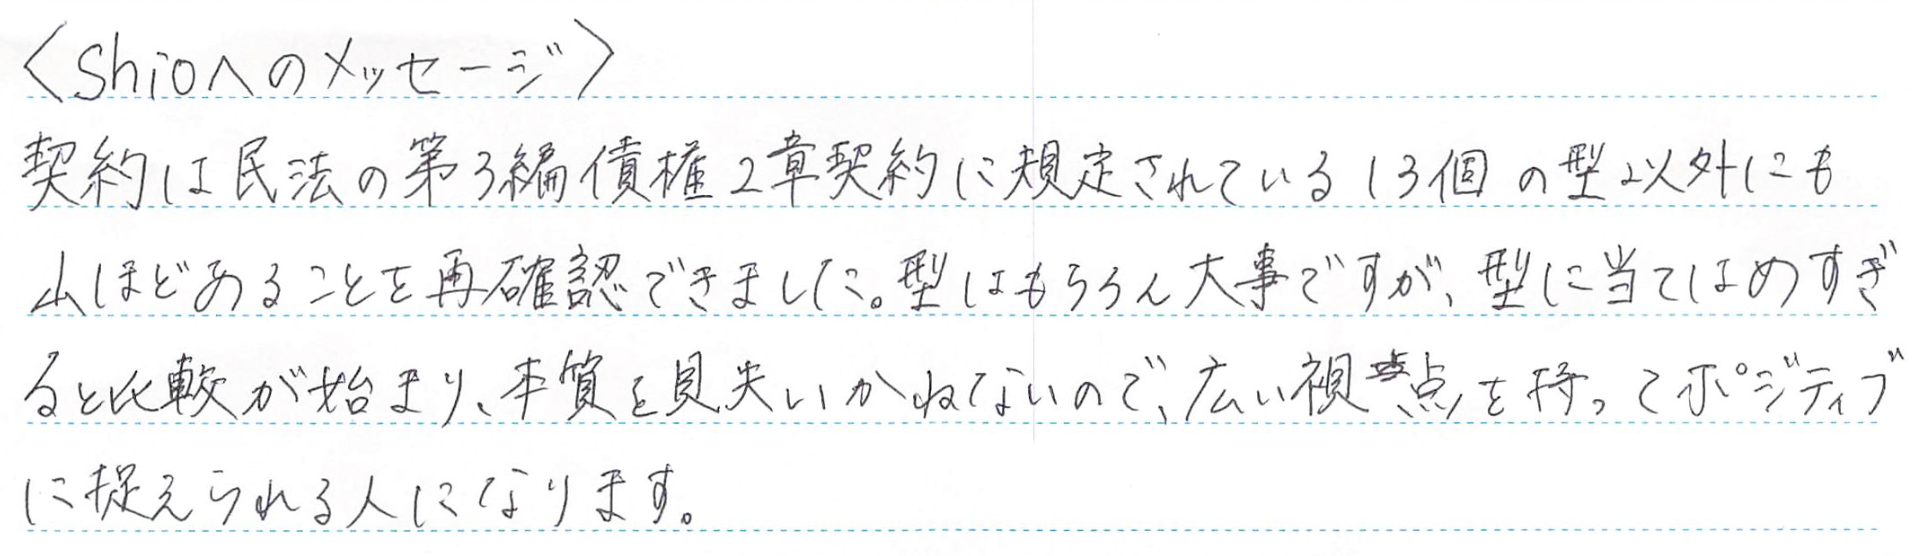 〈Shioへのメッセージ〉
契約は民法の第3編債権2章契約に規定されている13個の型以外にも
山ほどあることを再確認できました。型はもちろん大事ですが、型に当てはめすぎ
ると比較が始まり、本質を見失いかねないので、広い視点を持ってポジティブ
に捉えられる人になります。